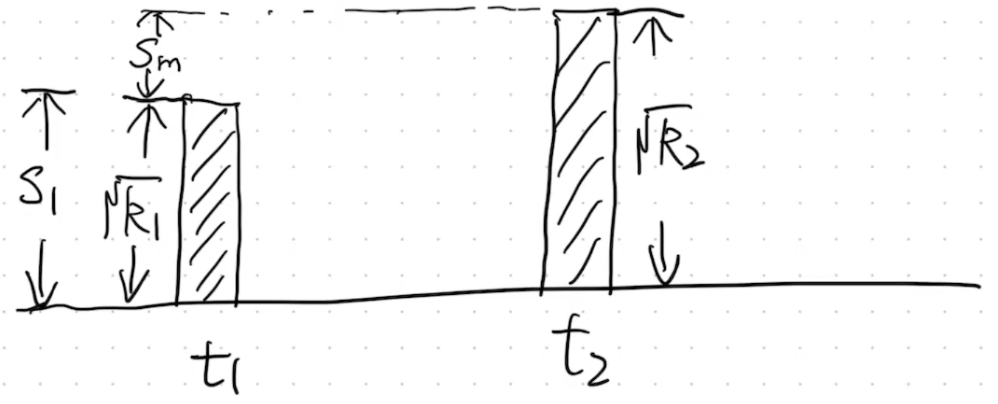 Sm
S1
√R1
√R2
t1
t2